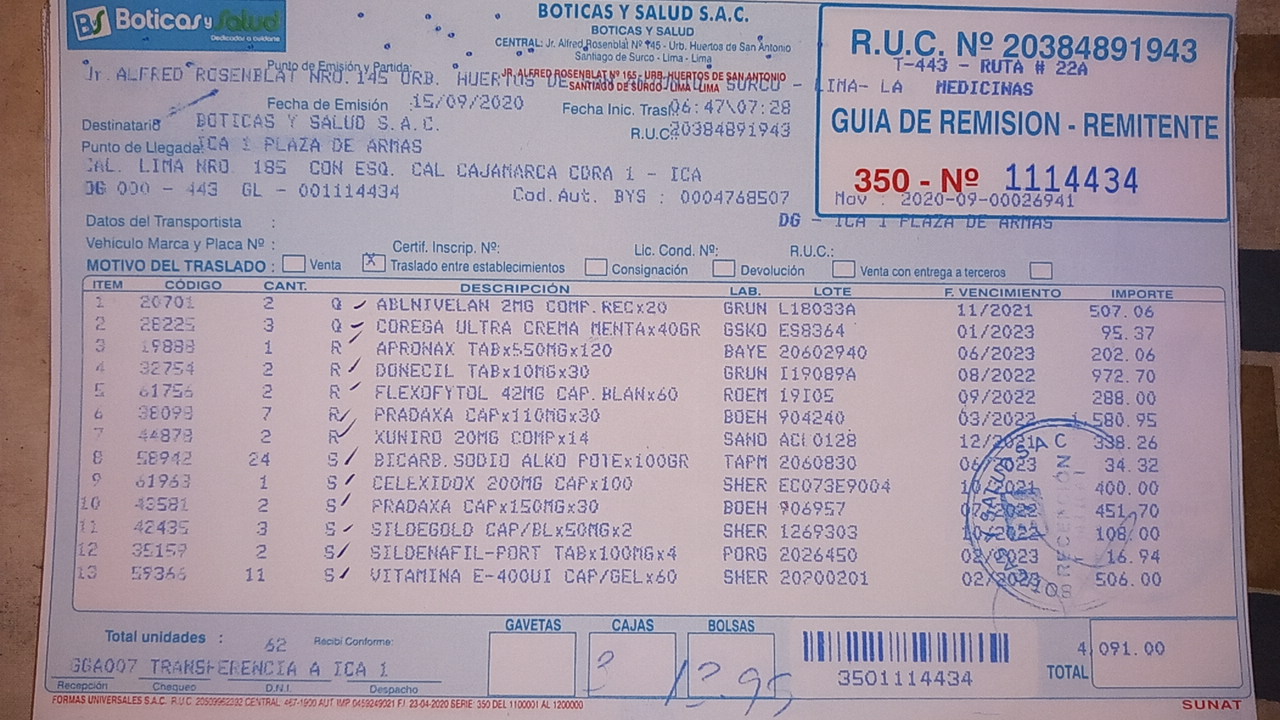 BS Boticas y Salud
Dedicados a cuidarte
BOTICAS Y SALUD S.A.C.
BOTICAS Y SALUD
CENTRAL: Jr. Alfred Rosenblat Nº 145 - Urb. Huertos de San Antonio
Santiago de Surco - Lima - Lima
R.U.C. Nº 20384891943
T-443 - RUTA # 22A
MEDICINAS
GUIA DE REMISION - REMITENTE
350 - Nº 1114434
Mov : 2020-09-00026941
DG - ICA 1 PLAZA DE ARMAS
Punto de Emisión y Partida:
Jr. ALFRED ROSENBLAT NRO. 145 URB. HUERTOS DE SAN ANTONIO SURCO - LIMA- LA
JR. ALFRED ROSENBLAT Nº 165 - URB. HUERTOS DE SAN ANTONIO
SANTIAGO DE SURCO - LIMA - LIMA
Fecha de Emisión :15/09/2020 Fecha Inic. Trasl 06:47\07:28
Destinatario BOTICAS Y SALUD S.A.C. R.U.C. 20384891943
Punto de Llegada: ICA 1 PLAZA DE ARMAS
CAL. LIMA NRO. 185 CON ESQ. CAL CAJAMARCA CDRA 1 - ICA
DG 000 - 443 GL - 001114434 Cod.Aut. BYS : 0004768507
Datos del Transportista :
Vehiculo Marca y Placa Nº : Certif. Inscrip. Nº: Lic. Cond. Nº: R.U.C.:
MOTIVO DEL TRASLADO : Venta X Traslado entre establecimientos Consignación Devolución Venta con entrega a terceros
ITEM CÓDIGO CANT. DESCRIPCIÓN LAB. LOTE F. VENCIMIENTO IMPORTE
1 20701 2 Q ABLNIVELAN 2MG COMP.RECx20 GRUN L18033A 11/2021 507.06
2 28225 3 Q COREGA ULTRA CREMA MENTAx40GR GSKO ES8364 01/2023 95.37
3 19888 1 R APRONAX TABx550MGx120 BAYE 20602940 06/2023 202.06
4 32754 2 R DONECIL TABx10MGx30 GRUN I19089A 08/2022 972.70
5 61756 2 R FLEXOFYTOL 42MG CAP.BLANx60 ROEM 19I05 09/2022 288.00
6 38098 7 R PRADAXA CAPx110MGx30 BOEH 904240 03/2022 1,580.95
7 44878 2 R XUNIRO 20MG COMPx14 SANO ACL0128 12/2021 338.26
8 58942 24 S BICARB.SODIO ALKO POTEx100GR TAPM 2060830 06/2023 34.32
9 61963 1 S CELEXIDOX 200MG CAPx100 SHER EC073E9004 10/2021 400.00
10 43581 2 S PRADAXA CAPx150MGx30 BOEH 906957 07/2022 451.70
11 42435 3 S SILDEGOLD CAP/BLx50MGx2 SHER 1269303 10/2022 108.00
12 35159 2 S SILDENAFIL-PORT TABx100MGx4 PORG 2026450 02/2023 16.94
13 59366 11 S VITAMINA E-400UI CAP/GELx60 SHER 20200201 02/2023 506.00
RECEPCIÓN
Total unidades : 62 Recibi Conforme:
GAVETAS CAJAS BOLSAS
GGA007 TRANSFERENCIA A ICA 1
Recepción Chequeo D.N.I. Despacho
3501114434
TOTAL 4,091.00
FORMAS UNIVERSALES S.A.C. R.U.C. 20509962332 CENTRAL 467-1900 AUT IMP 0459249021 F/ 23-04-2020 SERIE 350 DEL 1100001 AL 1200000
SUNAT